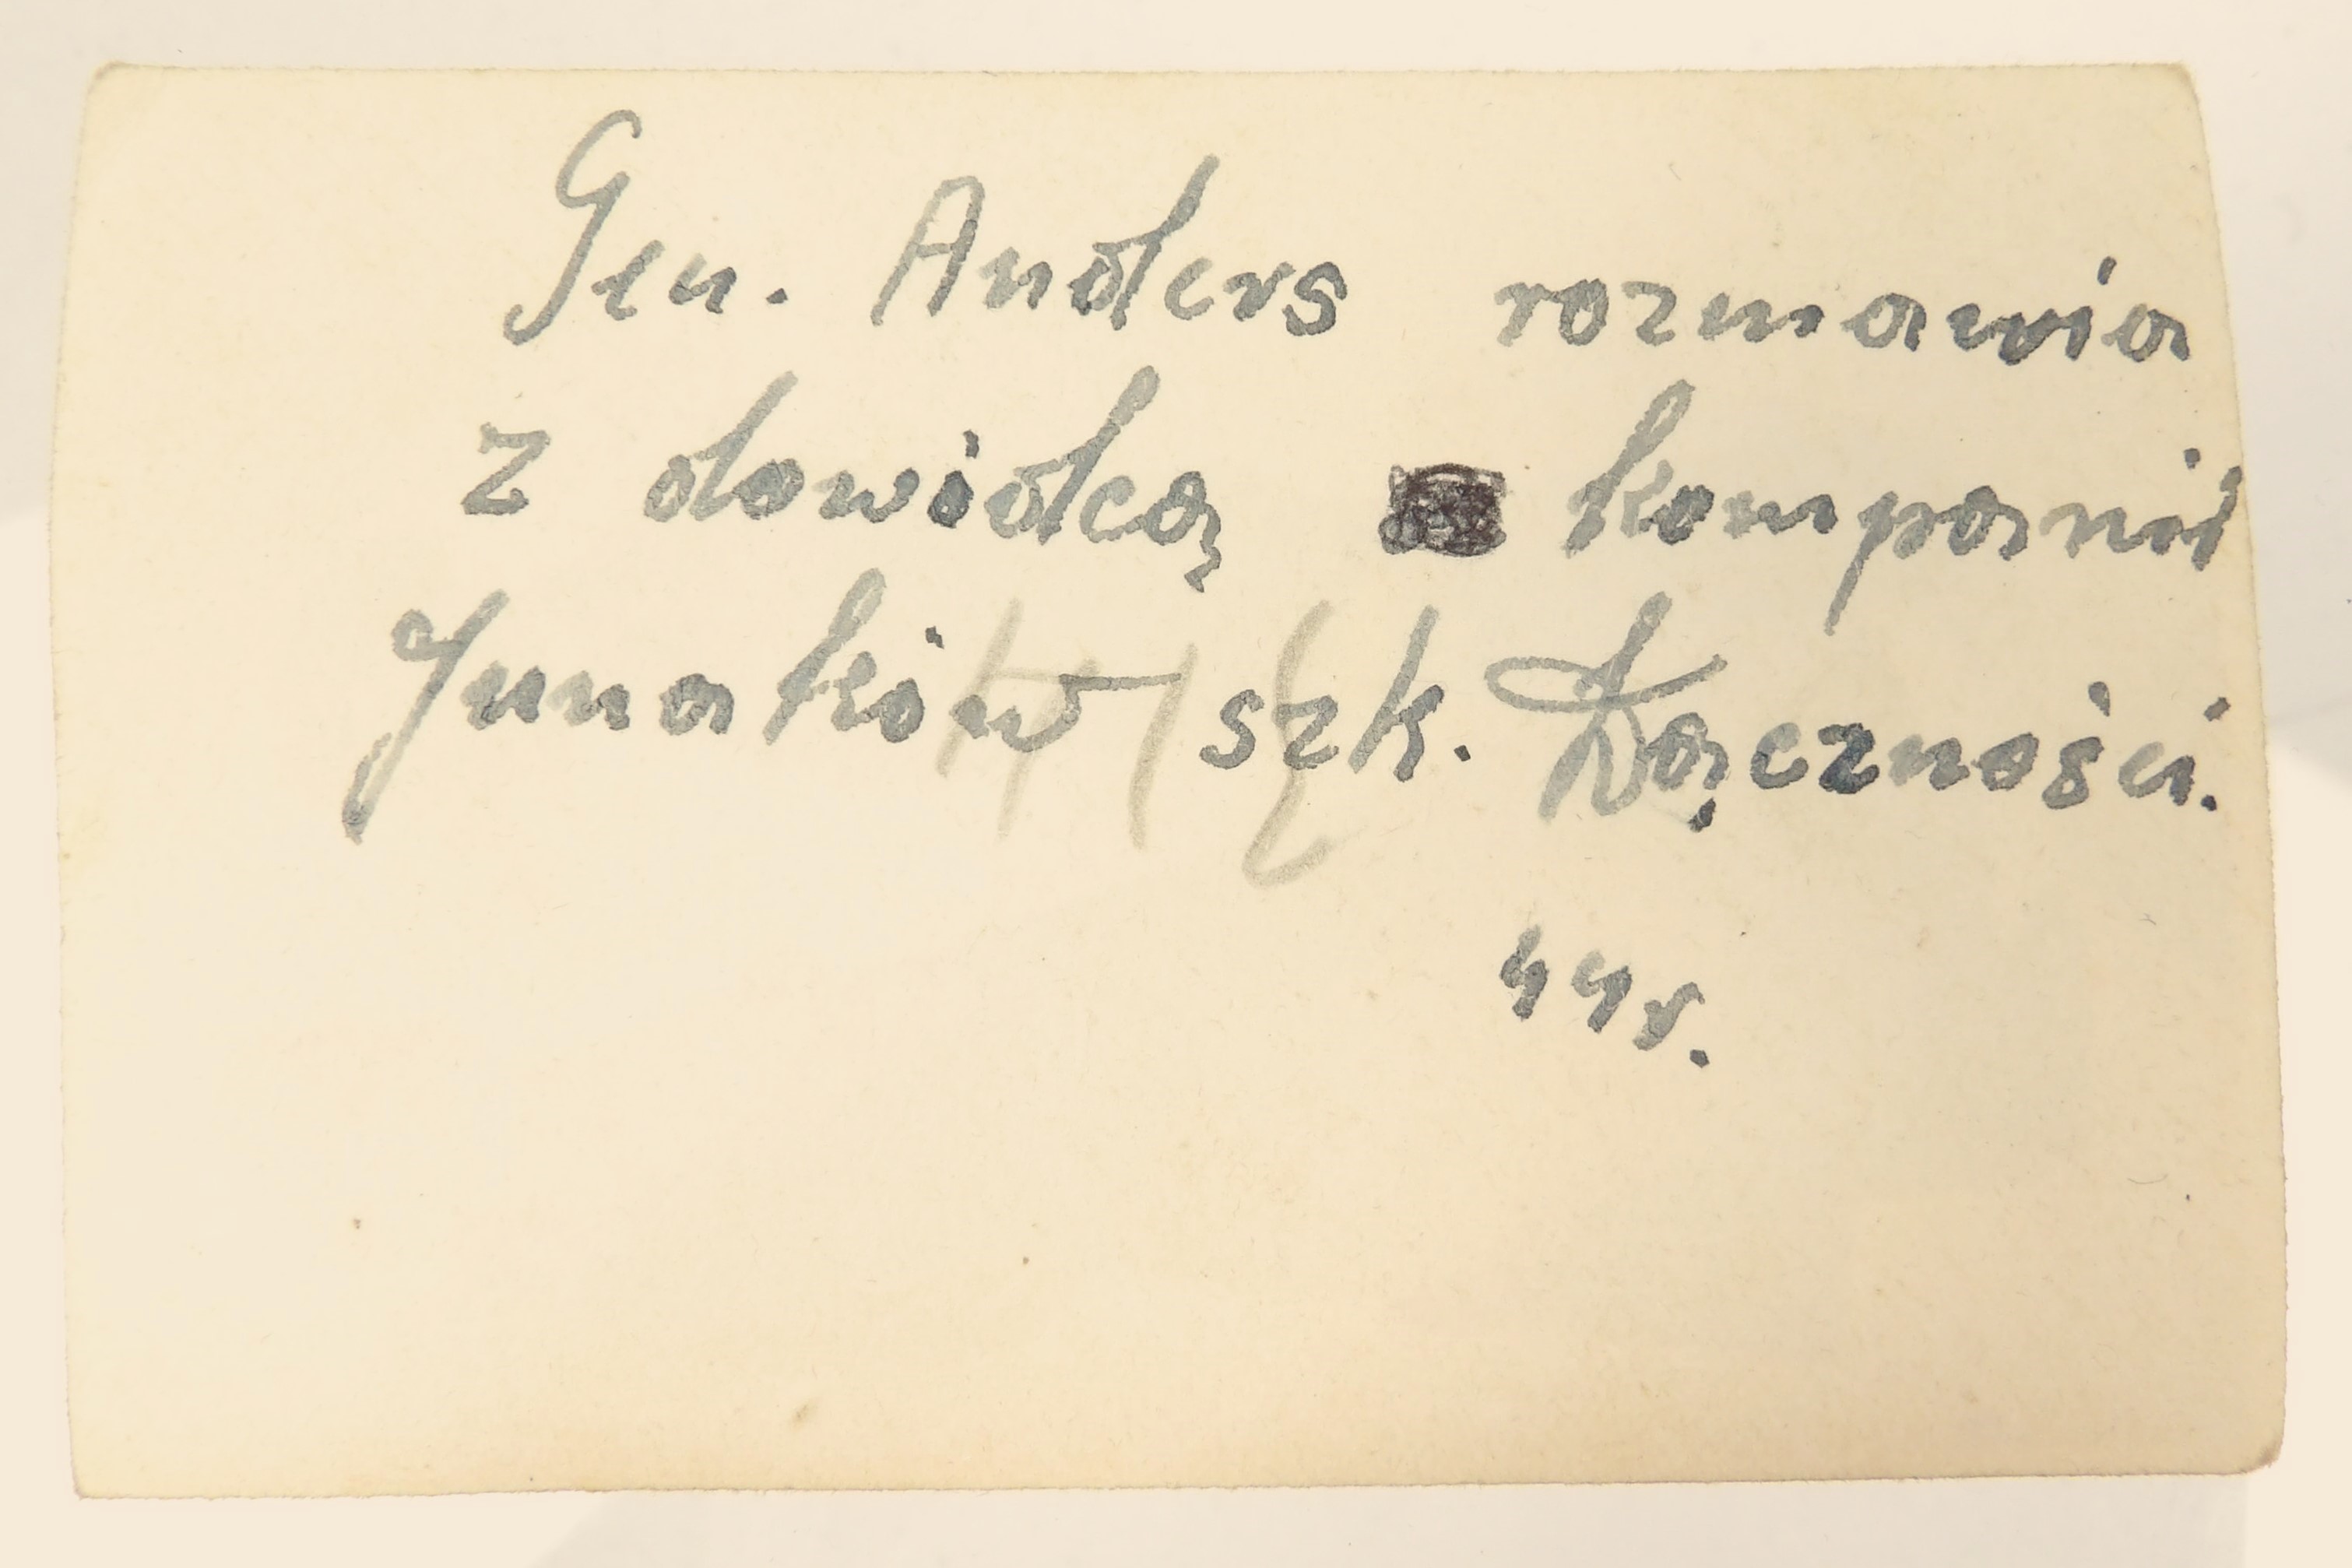 Gen. Anders rozmawia
z dowódcą kompanii
Junaków szk. Łączności.
44r.